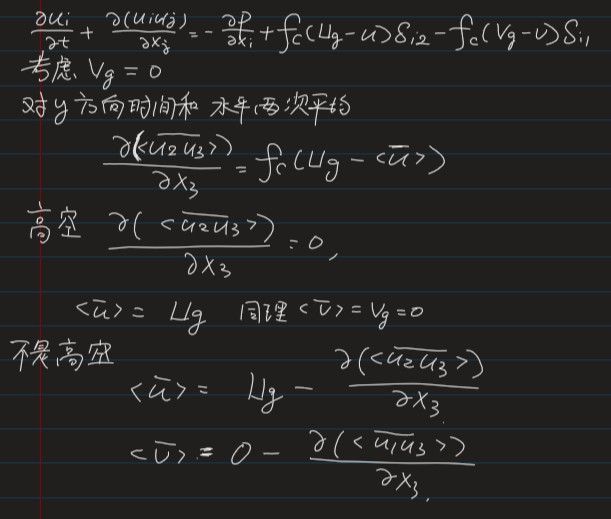 ∂uᵢ/∂t + ∂(uᵢuⱼ)/∂xⱼ = -∂P/∂xᵢ + f_c(Ug-u)δᵢ₂ - f_c(Vg-v)δᵢ₁
考虑 Vg = 0
对y方向时间和水平两次平均
∂(<\overline{u₂u₃}>)/∂x₃ = f_c(Ug - <ū>)
高空 ∂(<\overline{u₂u₃}>)/∂x₃ = 0,
<ū> = Ug 同理 <v̄> = Vg = 0
不是高空
<ū> = Ug - ∂(<\overline{u₂u₃}>)/∂x₃
<v̄> = 0 - ∂(<\overline{u₁u₃}>)/∂x₃.